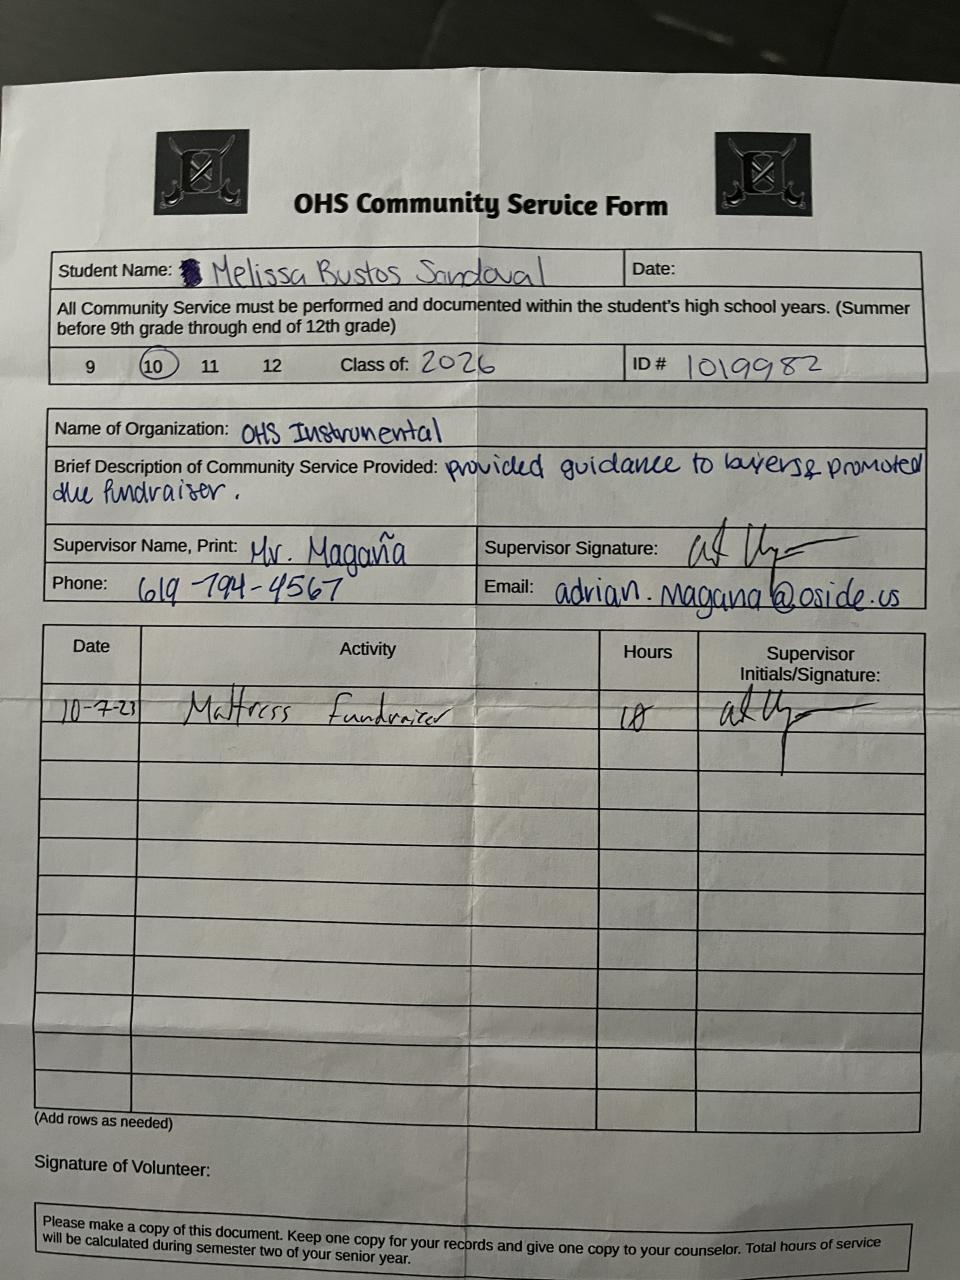 OHS Community Service Form
Student Name: Melissa Bustos Sandoval Date:
All Community Service must be performed and documented within the student's high school years. (Summer
before 9th grade through end of 12th grade)
9 10 11 12 Class of: 2026 ID # 1019982
Name of Organization: OHS Instrumental
Brief Description of Community Service Provided: provided guidance to buyers & promoted
the fundraiser.
Supervisor Name, Print: Mr. Magaña Supervisor Signature:
Phone: 619-794-4567 Email: adrian.magana@oside.us
Date Activity Hours Supervisor
Initials/Signature:
10-7-23 Mattress Fundraiser
(Add rows as needed)
Signature of Volunteer:
Please make a copy of this document. Keep one copy for your records and give one copy to your counselor. Total hours of service
will be calculated during semester two of your senior year.